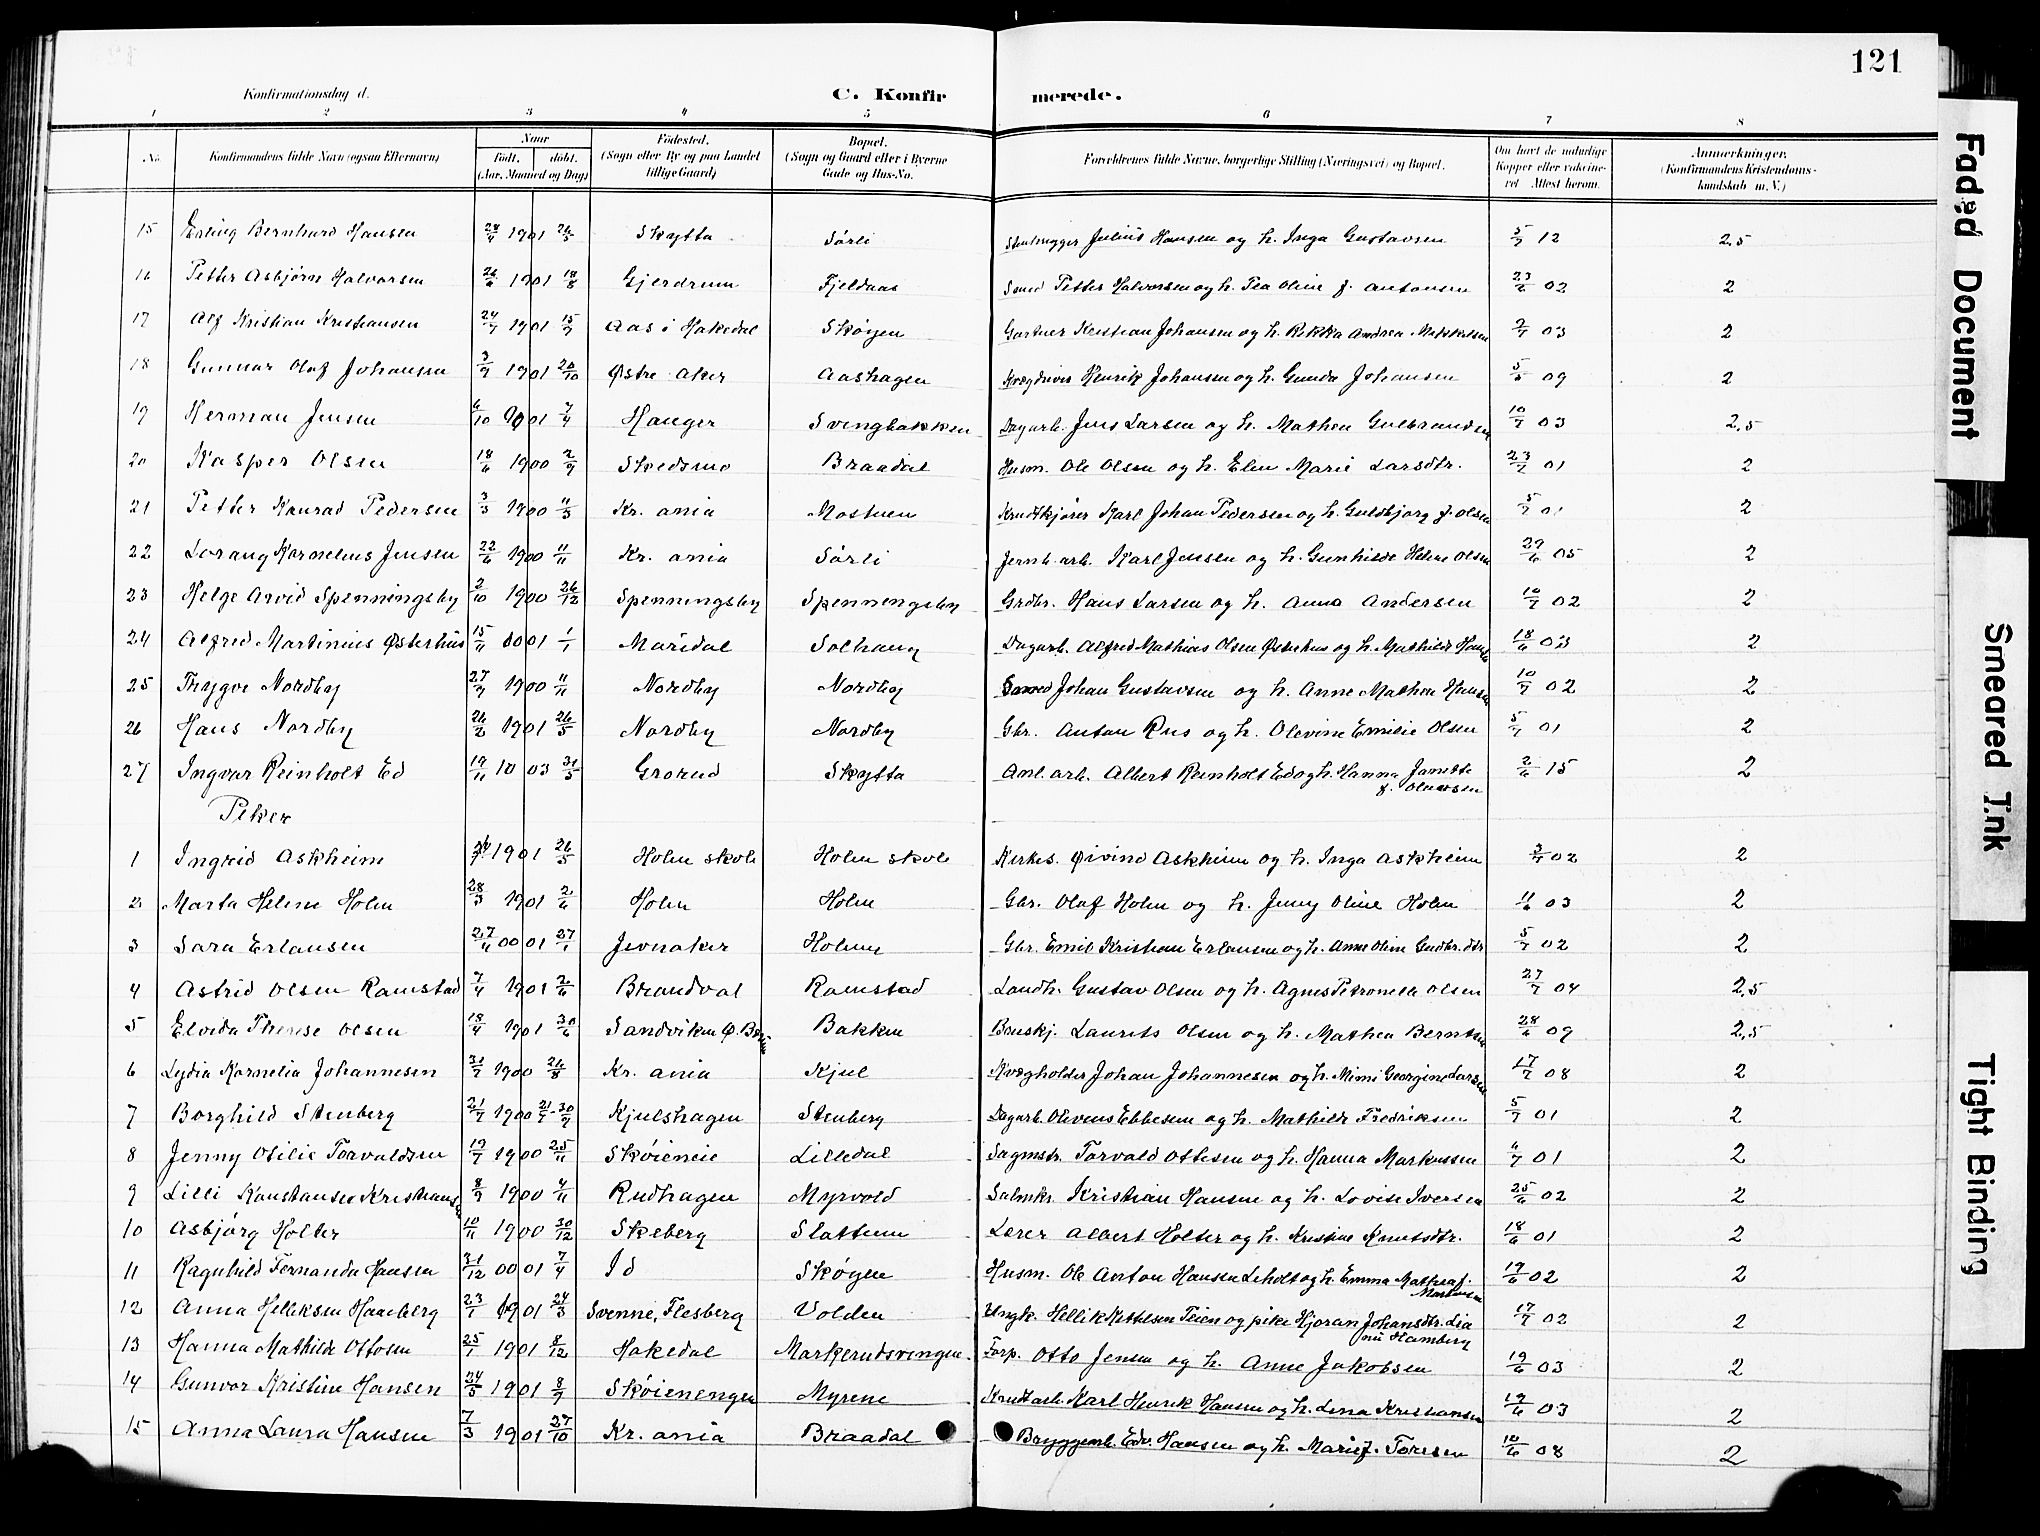 121
Konfirmationsdag d.
C. Konfirmerede.
1 2 3 4 5 6 7 8
No. Konfirmandens fulde Navn (ogsaa Efternavn) Naar født. døbt. (Aar, Maaned og Dag) Fødested. (Sogn eller By og paa Landet tillige Gaard) Bopæl. (Sogn og Gaard eller i Byerne Gade og Hus-No. Forældrenes fulde Navne, borgerlige Stilling (Næringsvei) og Bopæl. Om havt de naturlige Kopper eller vakcineret. Attest herom. Anmærkninger. (Konfirmandens Kristendomskundskab m. V.)
15 Erling Bernhard Hansen 28/4 1901 26/5 Skytta Sørli Stenhugger Julius Hansen og h. Inga Gustavsen 5/7 12 2,5
16 Petter Asbjørn Halvorsen 26/6 1901 18/8 Gjerdrum Fjeldaas Smed Petter Halvorsen og h. Pea Oline f. Antonsen 23/6 02 2
17 Alf Kristian Kristiansen 24/7 1901 15/9 Aas i Hakedal Skøyen Gartner Kristian Johansen og h. Rikka Andrea 2/7 03 2
18 Gunnar Olaf Johansen 3/9 1901 20/10 Østre Aker Aashagen Kvægdriver Henrik Johansen og h. Gunda Johansen 5/5 09 2
19 Herman Jensen 6/10 01 7/4 Hauger Svingbakken Dagarb. Jens Larsen og h. Mathea Gulbrandsen 10/7 03 2,5
20 Kasper Olsen 18/6 1900 2/9 Skedsmo Braadal Husm. Ole Olsen og h. Elen Marie Larsdtr. 23/7 01 2
21 Petter Konrad Pedersen 3/3 1900 11/3 Kr. ania Mostuen Krudtkjører Karl Johan Pedersen og h. Guldbjørg f. Olsen 5/7 01 2
22 Lorang Kornelius Jensen 22/6 1900 11/11 Kr. ania Sørli Jernb. arb. Karl Jensen og h. Gunhilde Helene Olsen 29/6 05 2
23 Helge Arvid Spenningsby 2/10 1900 26/12 Spenningsby Spenningsby Grdbr. Hans Larsen og h. Anna Andersen 10/7 02 2
24 Alfred Martinius Østerhus 15/11 00 01 1/1 Maridal Solhaug Dagarb. Alfred Mathias Olsen Østerhus og h. Mathilde 18/6 03 2
25 Thrygve Nordby 27/9 1900 11/11 Nordby Nordby Smed Johan Gustavsen og h. Anne Mathea Hansen 10/7 02 2
26 Hans Nordby 26/2 1901 26/5 Nordby Nordby Gbr. Anton Rus og h. Olevine Emilie Olsen 5/7 01 2
27 Ingvar Reinholt Ed 19/11 03 31/5 Grorud Skytta Anl. arb. Albert Reinholt Ed og h. Hanna 2/6 15 2
Piker
1 Ingrid Askheim 1901 26/5 Holm skole Holm skole Kirkes. Øivind Askheim og h. Inga Askheim 3/7 02 2
2 Marta Helene Holm 28/3 1901 2/6 Holm Holm Gbr. Olaf Holm og h. Jenny Oline Holm 11/6 03 2
3 Sara Erlansen 27/11 00 01 27/1 Jevnaker Holm Gbr. Emil Kristian Erlansen og h. Anne Oline Gudbr.dtr 5/7 02 2
4 Astrid Olsen Ramstad 7/4 1901 2/6 Brandval Ramstad Landh. Gustav Olsen og h. Agnes Petronelle Olsen 27/7 04 2,5
5 Elvida Therese Olsen 18/4 1901 30/6 Sandviken Ø. Bærum Bakken Bruskj. Laurits Olsen og h. Mathea Berntsen 28/6 09 2,5
6 Lydia Kornelia Johannesen 31/7 1900 26/8 Kr. ania Kjul Kvægholder Johan Johannesen og h. Mimi Georgine Larsen 17/7 08 2
7 Borghild Stenberg 21/7 1900 30/9 Kjulshagen Stenberg Dagarb. Olevens Ebbesen og h. Mathilde Fredriksen 5/7 01 2
8 Jenny Otilie Torvaldsen 19/7 1900 25/11 Skøieneie Lilledal Sagmstr. Torvald Ottesen og h. Hanna Markussen 4/7 01 2
9 Lilli Konstanse Kristiansen 8/9 1900 4/11 Rudhagen Myrvold Salmkr. Kristian Hansen og h. Lovise Iversen 25/6 02 2
10 Asbjørg Holter 10/11 1900 30/12 Skeberg Slattum Lærer Albert Holter og h. Kristine Knutsdtr. 18/6 01 2
11 Ragnhild Fernanda Hansen 31/12 00 01 7/4 Id Skøyen Husm. Ole Anton Hansen Leholt og h. Emma Mathea f. 19/6 02 2
12 Anna Helliksen Hamberg 23/1 1901 24/3 Svenne, Flesberg Volden Ungk. Hellik Kittelsen Teien og pike Hjøran Johansdtr. Lia nu Hamberg 17/7 02 2
13 Hanna Mathilde Ottosen 25/1 1901 8/12 Hakedal Markerudsvingen Forp. Otto Jensen og h. Anne Jakobsen 19/6 03 2
14 Gunvor Kristine Hansen 24/5 1901 8/9 Skøienengen Myrene Krudtarb. Karl Henrik Hansen og h. Lina Kristiansen 19/6 03 2
15 Anna Laura Hansen 7/3 1901 27/10 Kr. ania Braadal Bryggearb. Edv. Hansen og h. Marie f. Toresen 10/6 08 2
Faded Document
Smeared Ink
Tight Binding